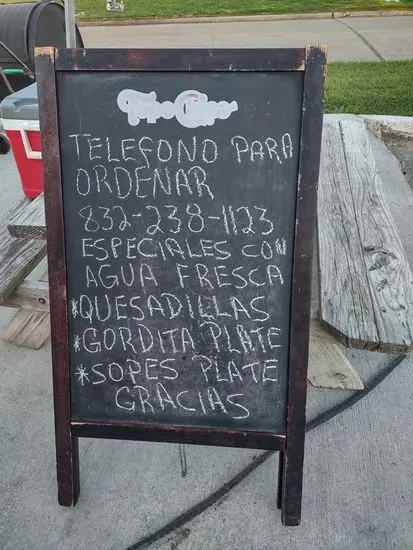 TELEFONO PARA
ORDENAR
832-238-1123
ESPECIALES CON
AGUA FRESCA
*QUESADILLAS
*GORDITA PLATE
*SOPES PLATE
GRACIAS